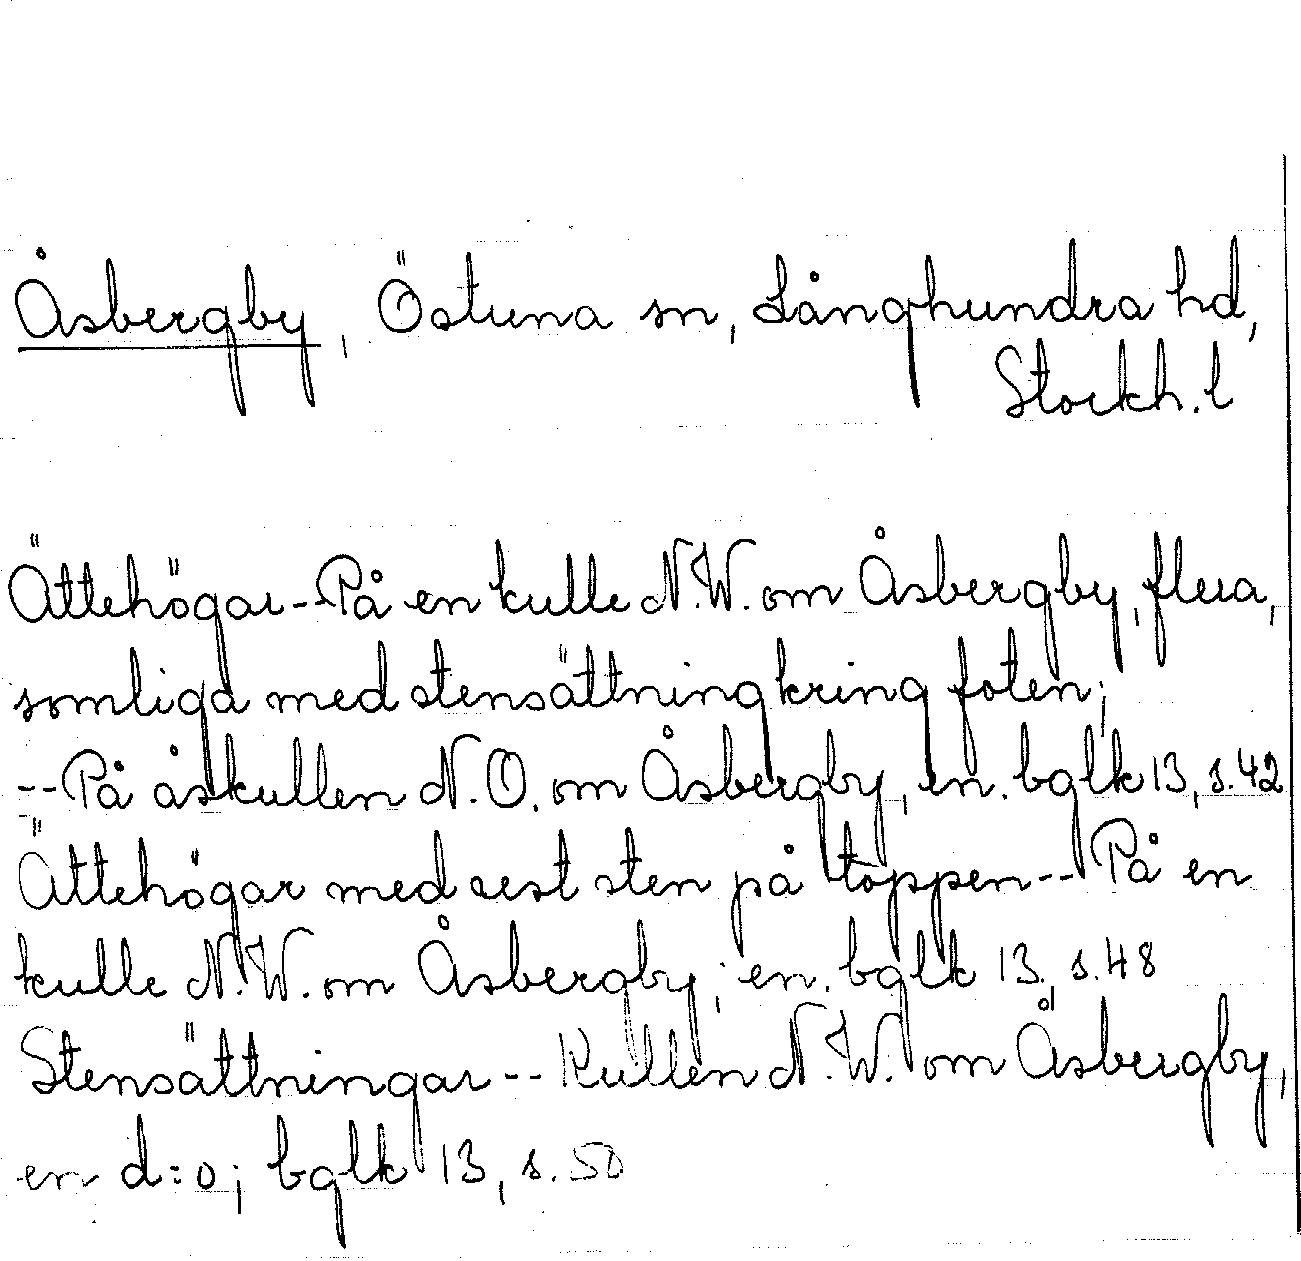 Åsbergby, Östuna sn, Långhundra hd,
Stockh. l
Ättehögar--På en kulle N.W. om Åsbergby, flera,
somliga med stensättning kring foten;
--På åskullen N.O. om Åsbergby, en. bglk 13, s.42
Ättehögar med rest sten på toppen--På en
kulle N.W. om Åsbergby; en. bglk 13, s.48
Stensättningar--Kullen N.W. om Åsbergby,
en d:o; bglk 13, s.50